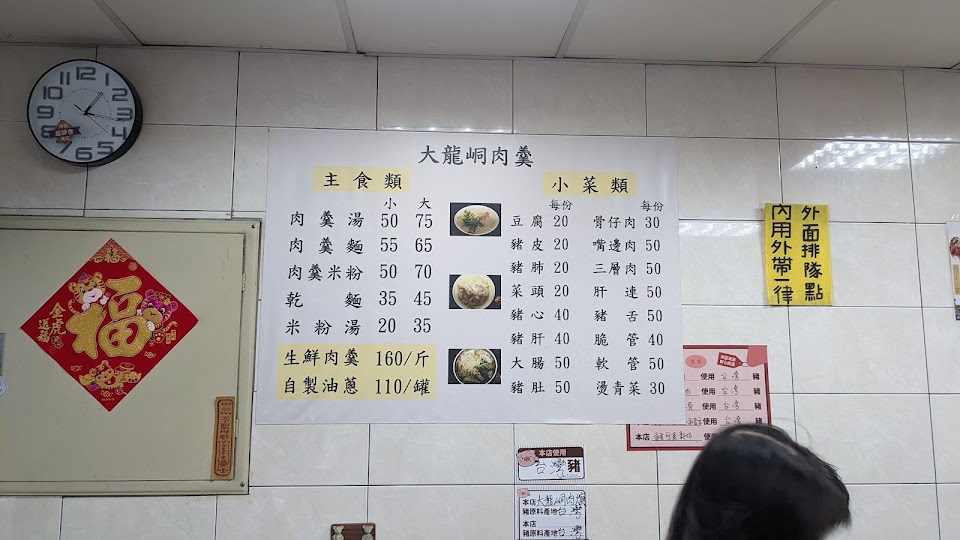 大龍峒肉羹
主食類
小 大
肉羹湯 50 75
肉羹麵 55 65
肉羹米粉 50 70
乾麵 35 45
米粉湯 20 35
生鮮肉羹 160/斤
自製油蔥 110/罐
小菜類
每份 每份
豆腐 20 骨仔肉 30
豬皮 20 嘴邊肉 50
豬肺 20 三層肉 50
菜頭 20 肝連 50
豬心 40 豬舌 50
豬肝 40 脆管 40
大腸 50 軟管 50
豬肚 50 燙青菜 30
內用外帶一律
外面排隊點
12 1 2 3 4 5 6 7 8 9 10 11
福
金虎
使用 台灣 豬
使用 台灣 豬
使用 台灣 豬
使用 台灣 豬
本店
本店使用
台灣豬
本店 大龍峒肉羹
豬原料產地 台灣
本店
豬原料產地 台灣